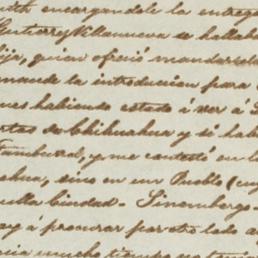 encargandole la entreg
Gutierrez Villanueva se hallab
dijo, quien ofreció mandarsela
mande la introduccion para
ues habiendo estado á ver á S
rtes de Chihuahua y si hab
Tamboral, y me contestó en l
ahua, sino en un Pueblo (cuy
uella Ciudad. Sinembargo
ay á procurar por otro lado a
mucho tiempo no ten